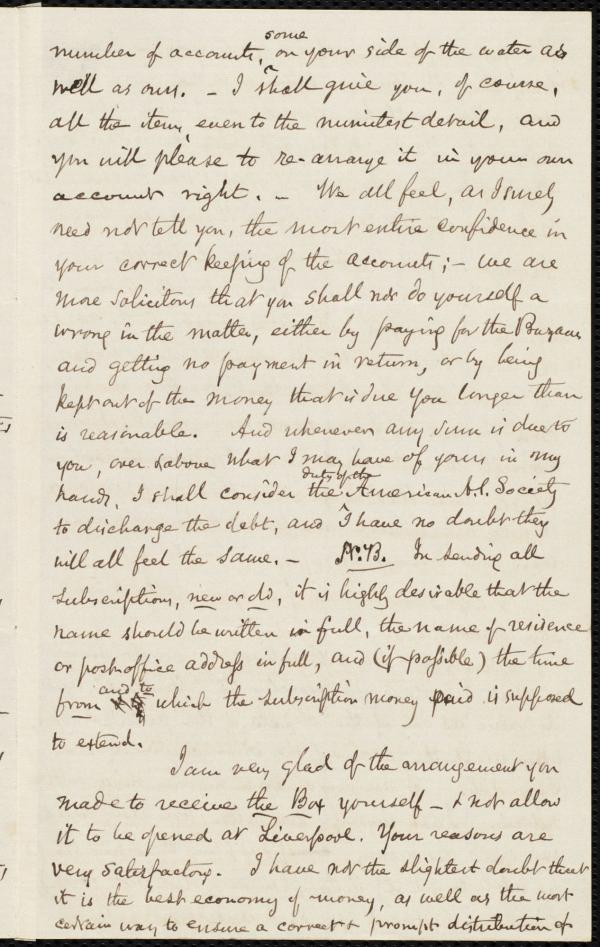 some
number of accounts, on your side of the water as
well as ours. – I shall give you, of course,
all the items, even to the minutest detail, and
you will please to re-arrange it in your own
account right. – We all feel, as I surely
need not tell you, the most entire confidence in
your correct keeping of the accounts; – we are
more solicitous that you shall not do yourself a
wrong in the matter, either by paying for the Bazaar
and getting no payment in return, or by being
kept out of the money that is due you longer than
is reasonable. And whenever any sum is due to
you, over & above what I may have of yours in my
duty of the
hands, I shall consider the American A.S. Society
to discharge the debt, and I have no doubt they
will all feel the same. – N.B. In sending all
subscriptions, new or old, it is highly desirable that the
name should be written in full, the name of residence
or post-office address in full, and (if possible) the time
and to
from which the subscription money paid is supposed
to extend.
I am very glad of the arrangement you
made to receive the Box yourself – & not allow
it to be opened at Liverpool. Your reasons are
very satisfactory. I have not the slightest doubt that
it is the best economy of money, as well as the most
certain way to ensure a correct & prompt distribution of